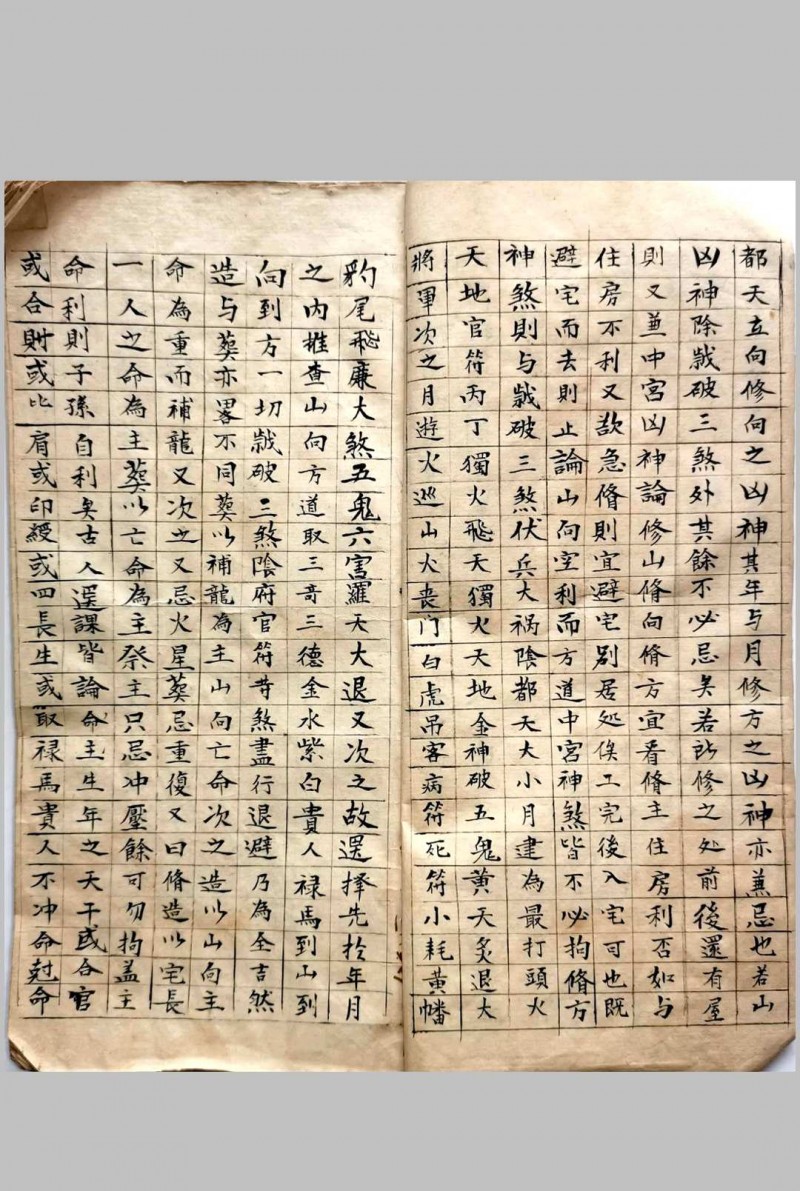 都天立向修向之凶神其年与月修方之凶神亦兼忌也若山
凶神除歲破三煞外其餘不必忌矣若所修之处前後還有屋
則又兼中宮凶神論修山脩向脩方宜看脩主住房利否如与
住房不利又欲急脩則宜避宅别居处俟工完後入宅可也既
避宅而去則止論山向空利而方道中宮神煞皆不必拘脩方
神煞則与歲破三煞伏兵大祸陰都天大小月建為最打頭火
天地官符丙丁獨火飛天獨火天地金神破五鬼黄天炙退大
將軍次之月遊火巡山火喪门白虎吊客病符死符小耗黄幡
豹尾飛廉大煞五鬼六害羅天大退又次之故選擇先於年月
之内推查山向方道取三竒三德金水紫白貴人禄馬到山到
向到方一切歲破三煞陰府官符等煞盡行退避乃為全吉然
造与葬亦畧不同葬以補龍為主山向亡命次之造以山向主
命為重而補龍又次之又忌火星葬忌重復又曰脩造以宅長
一人之命為主葬以亡命為主祭主只忌冲壓餘可勿拘盖主
命利則子孫自利矣古人選課皆論命主生年之天干或合官
或合財或比肩或印綬或四長生或取禄馬貴人不冲命尅命